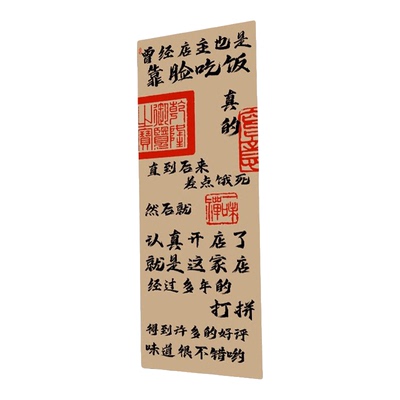 曾经店主也是
靠脸吃饭
真的
乾隆
御览
之宝
直到后来
差点饿死
然后就
一味
禅
认真开店了
就是这家店
经过多年的
打拼
得到许多的好评
味道很不错哟